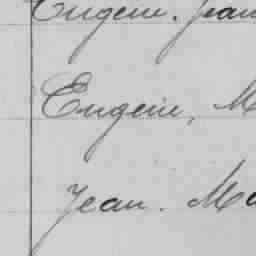 Eugène. Jean
Eugène, M
Jean. Ma